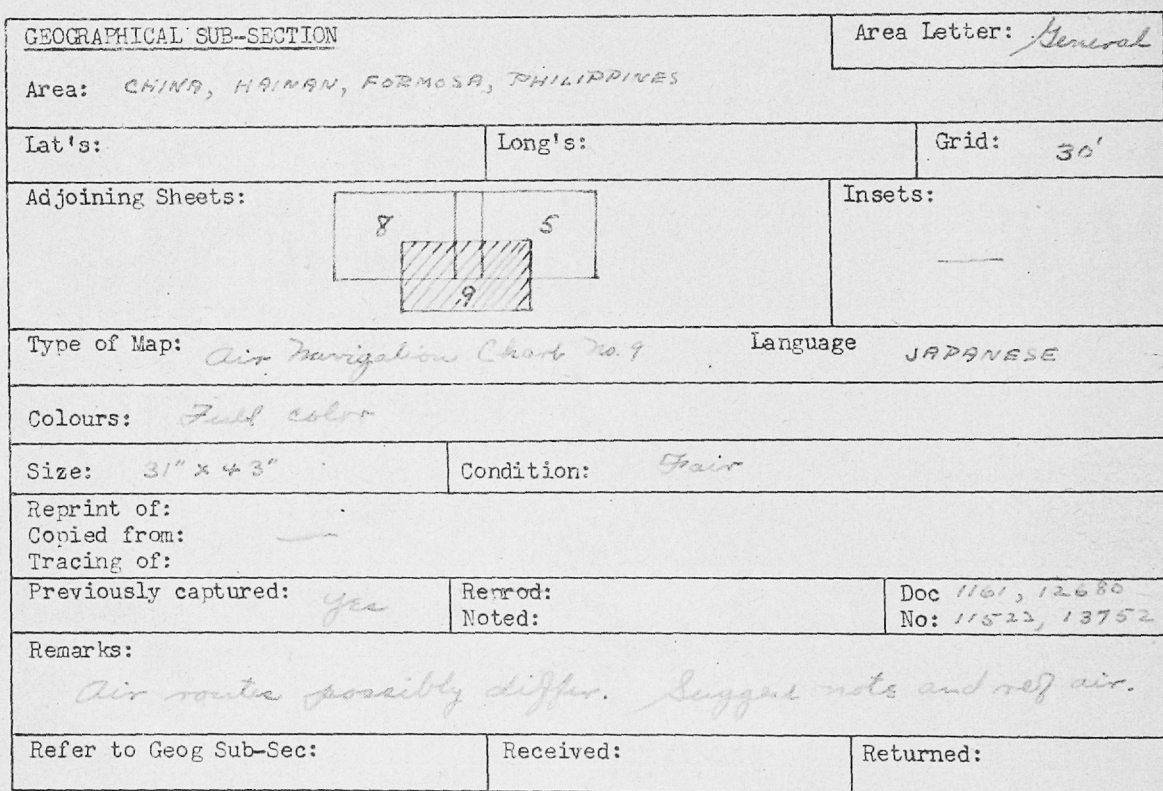 GEOGRAPHICAL SUB-SECTION
Area Letter: General
Area: CHINA, HAINAN, FORMOSA, PHILIPPINES
Lat's: Long's: Grid: 30'
Adjoining Sheets: Insets:
8 5
9
—
Type of Map: Air Navigation Chart No. 9 Language JAPANESE
Colours: Full color
Size: 31" x 43" Condition: Fair
Reprint of:
Copied from: —
Tracing of:
Previously captured: yes Reprod: Doc 1161, 12680
Noted: No: 11522, 13752
Remarks:
Air routes possibly differ. Suggest note and ref air.
Refer to Geog Sub-Sec: Received: Returned: